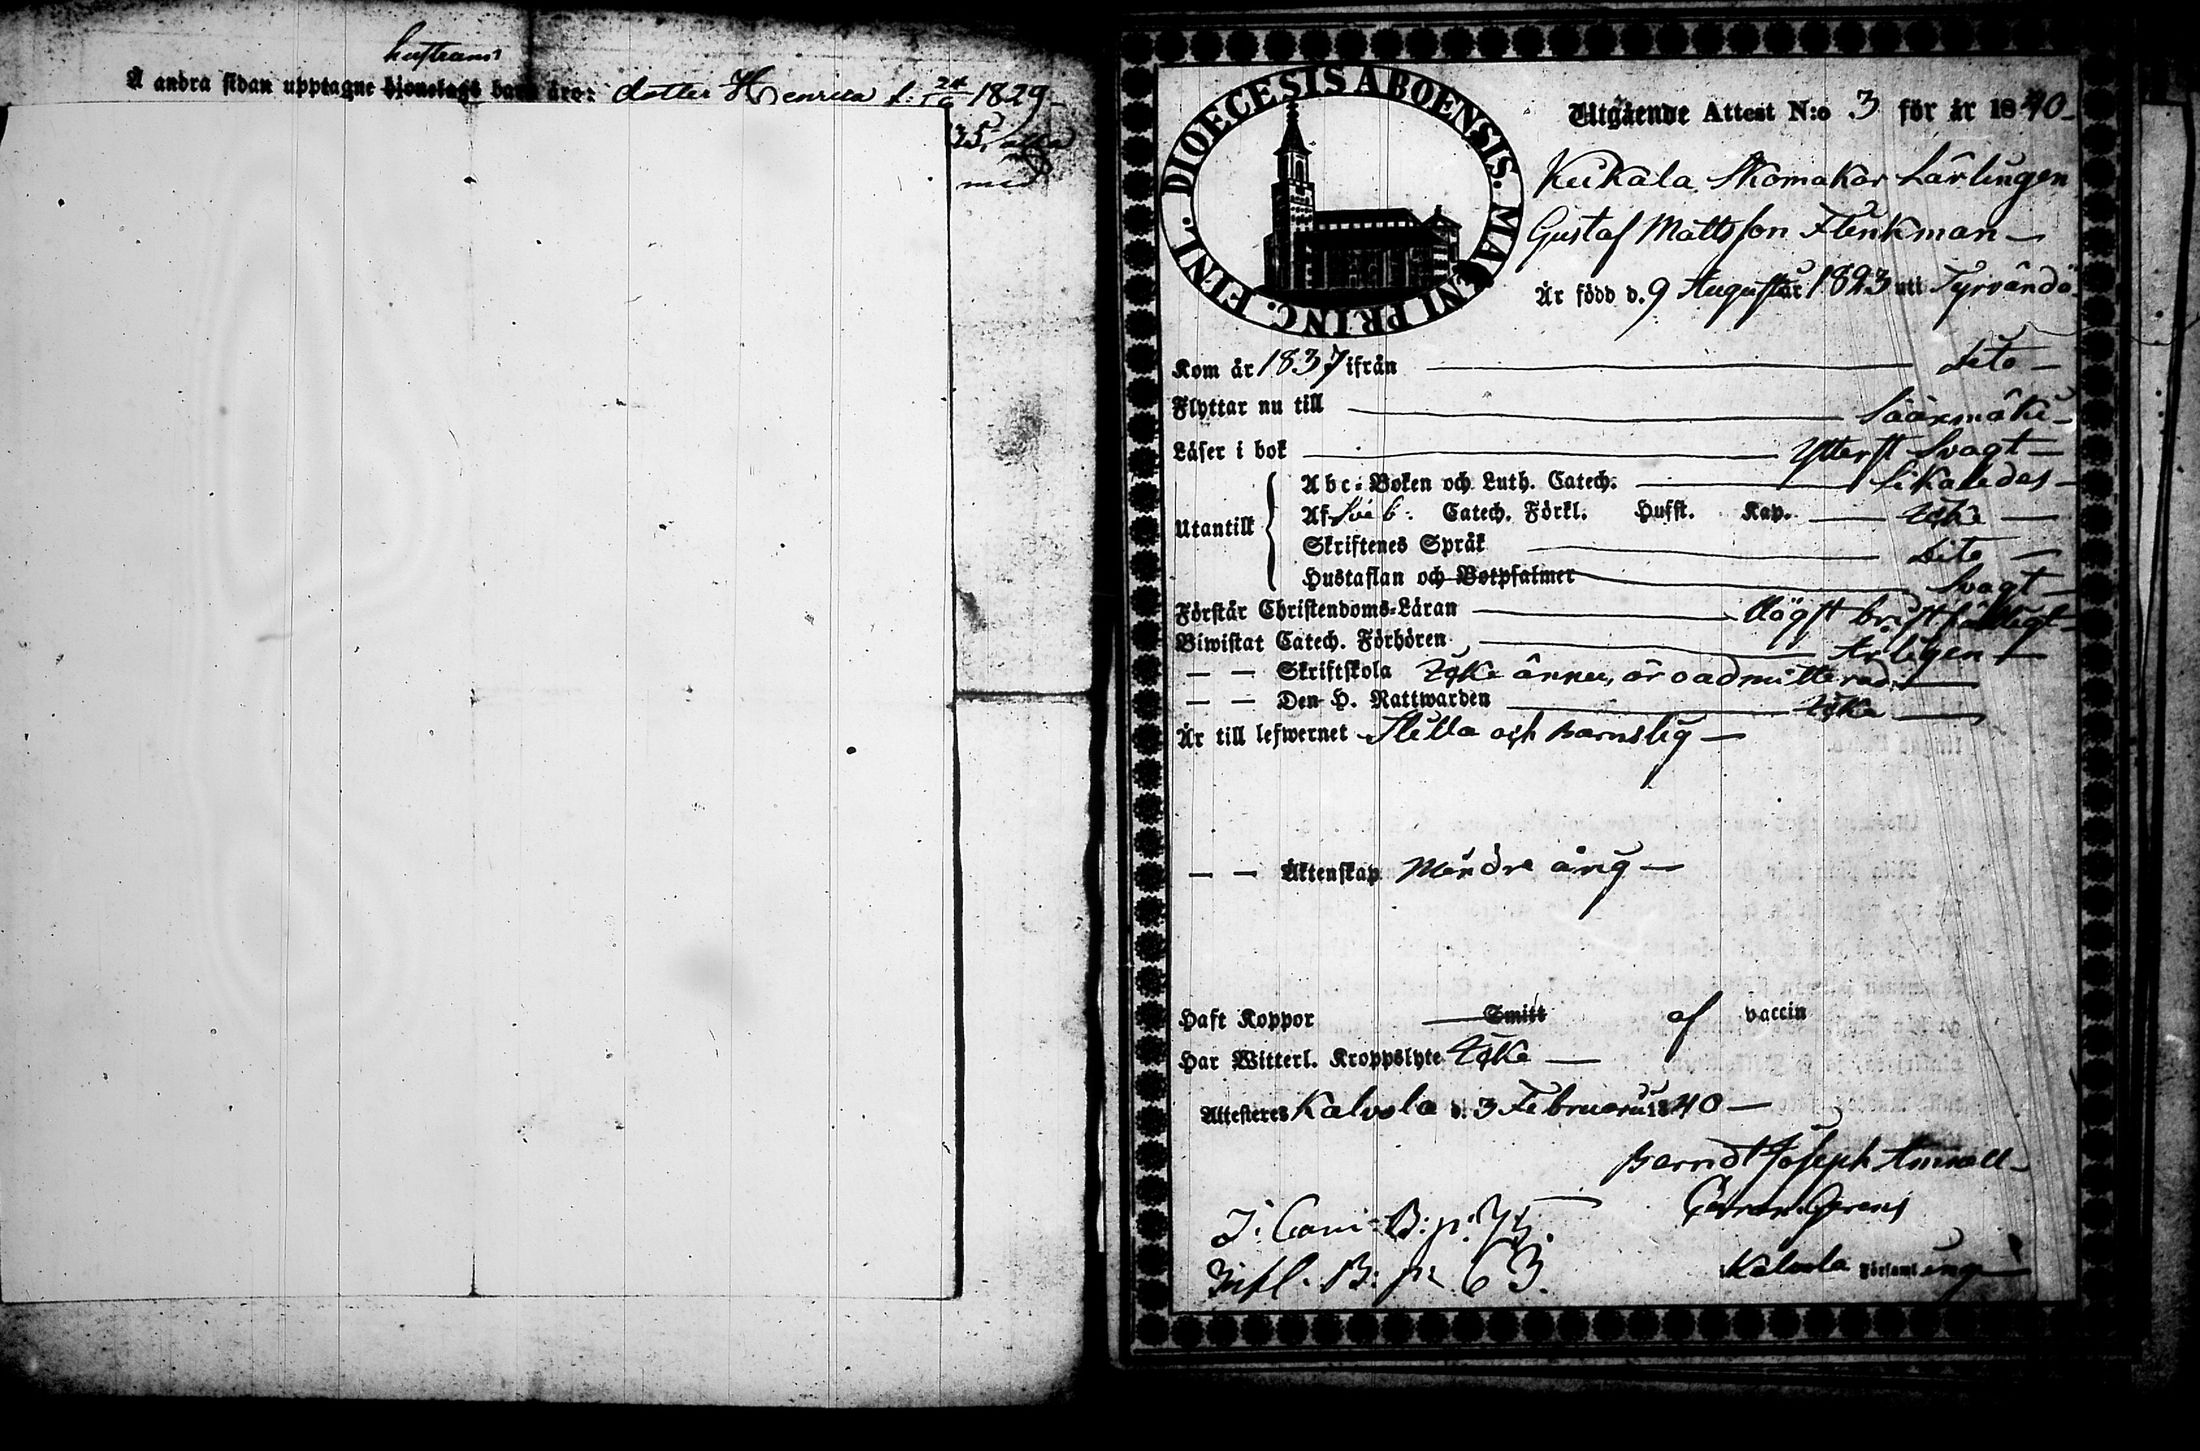 hustruns
Å andra sidan upptagne hjonelags barn äro: dotter Henrica f. 24/10 1829
35, alla
med
DIOECESIS ABOENSIS. MAGNI PRINC. FINL.
Utgående Attest N:o 3 för år 1840
Kukala Skomakar Lärlingen
Gustaf Mattsson Flinkman
Är född d. 9 Augusti år 1823 uti Tyrvändö
Kom år 1837 ifrån dito
Flyttar nu till Sääxmäki
Läser i bok ytterst svagt
Utantill
Abc-Boken och Luth. Catech. likaledes
Af Sveb. Catech. Förkl. Hufst. Kap. icke
Skriftenes Språk dito
Hustaflan och Botpsalmer svagt
Förstår Christendoms-Läran högst bristfälligt
Biwistat Catech. Förhören årligen
— — Skriftskola icke ännu, är oadmitterad
— — Den H. Nattwarden icke
Är till lefwernet stilla och barnslig
— — Äktenskap mindre årig
Haft Koppor Smitt af vaccin
Har Witterl. Kroppslyte icke
Attesteres Kalvola d. 3 Februarii 1840
Berndt Joseph
J. Com: B: p: 75.
Infl. B: p: 63.
Kalvola Församling